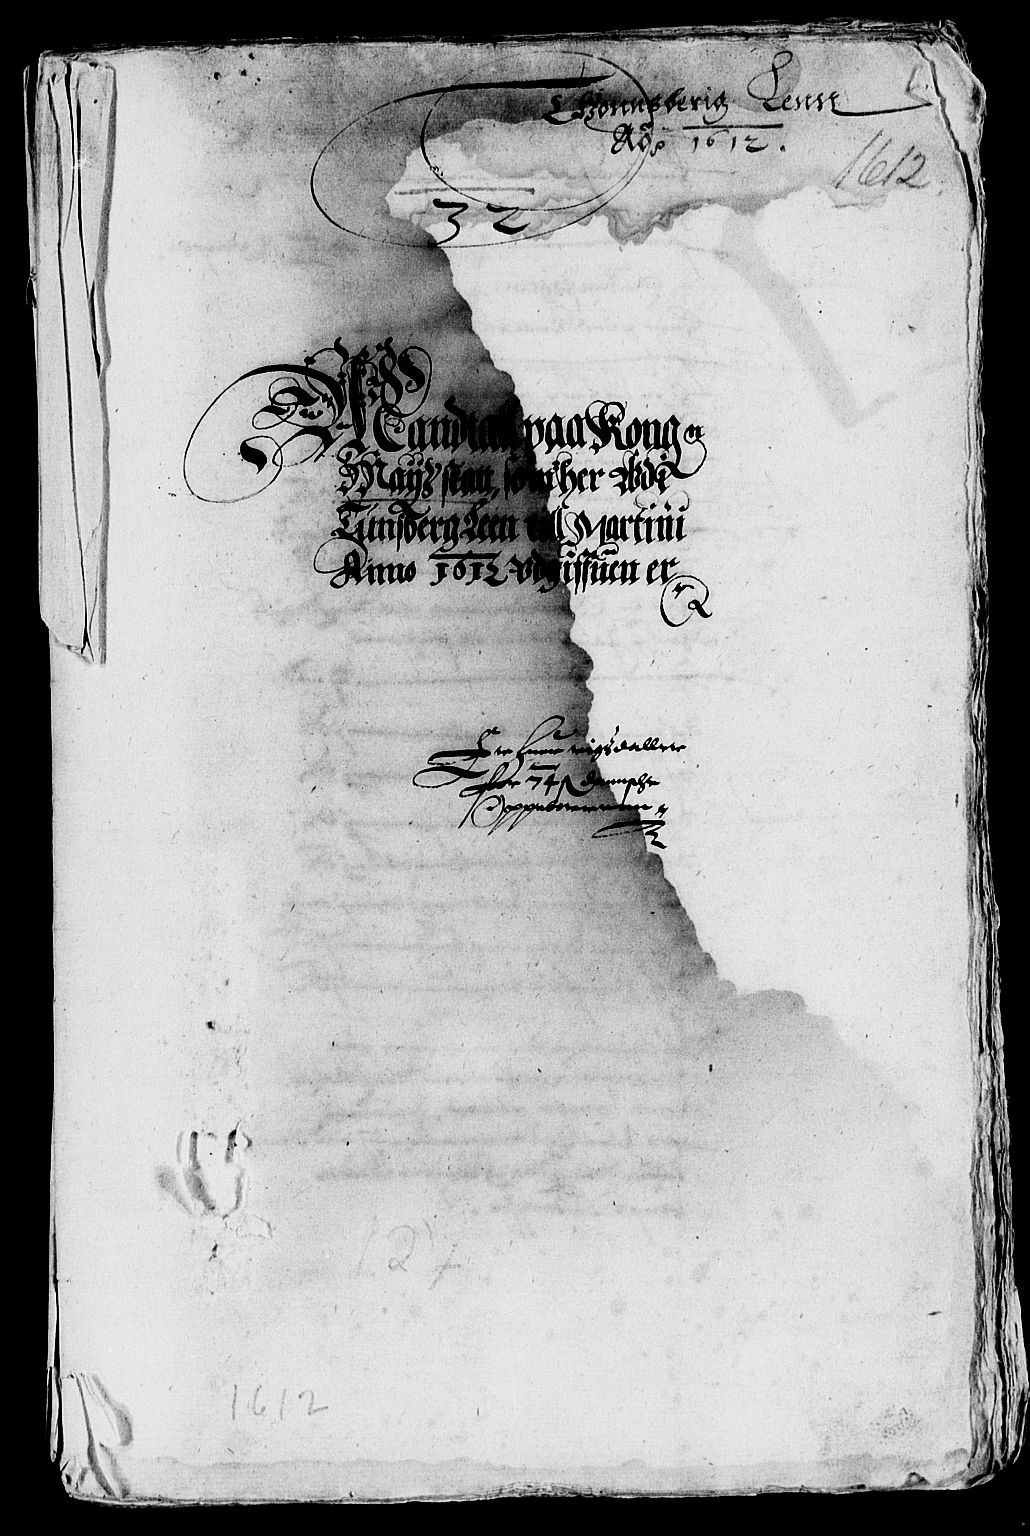 Tonnsberig Lenn
Año 1612.
1612.
32
Mandtall paa Kong
Maÿs: skatt, som her udi
Tunsberg Leen till Martini
Anno 1612 udgiffuen er
rigsdaller
74 ß dannsche
127
1612